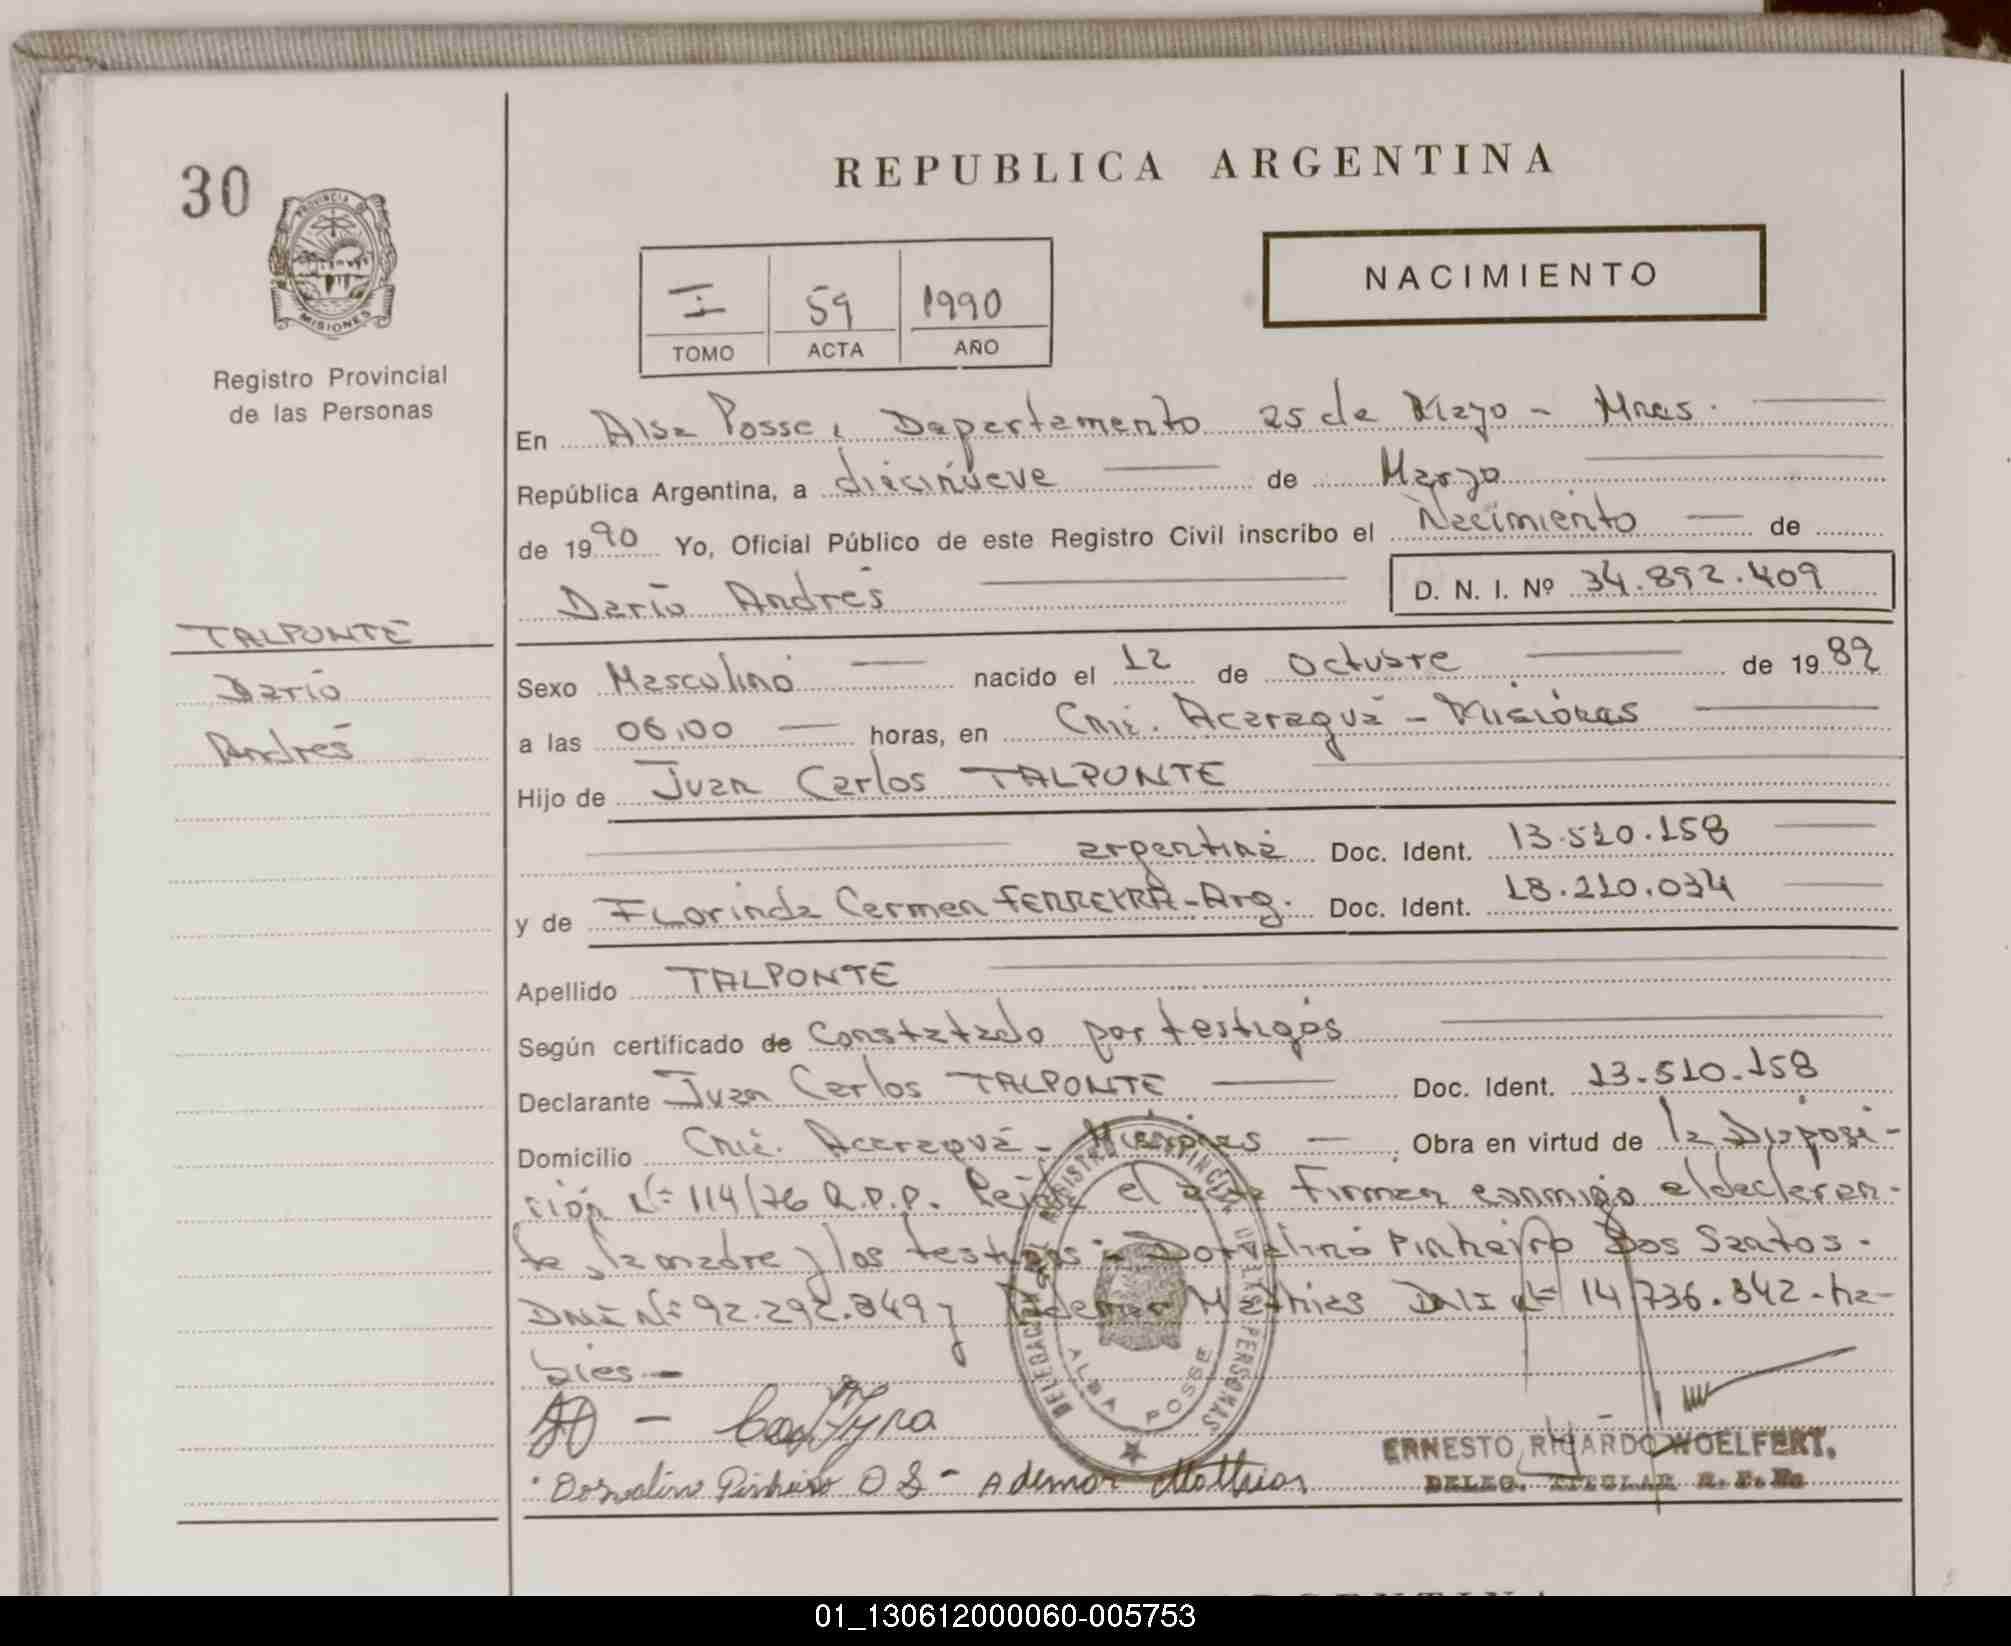 REPUBLICA ARGENTINA
30
PROVINCIA DE
MISIONES
Registro Provincial
de las Personas
NACIMIENTO
I 59 1990
TOMO ACTA AÑO
En Alba Posse, Departamento 25 de Mayo - Mnes.
República Argentina, a diecinueve de Marzo
de 1990 Yo, Oficial Público de este Registro Civil inscribo el Nacimiento de
Darío Andrés
D. N. I. Nº 34.892.409
TALPONTE
Darío
Andrés
Sexo Masculino nacido el 12 de Octubre de 1989
a las 06,00 horas, en Cnia. Acaraguá - Misiones
Hijo de Juan Carlos TALPONTE
argentina Doc. Ident. 13.510.158
y de Florinda Carmen FERREYRA - Arg. Doc. Ident. 18.210.034
Apellido TALPONTE
Según certificado de Constatado por testigos
Declarante Juan Carlos TALPONTE Doc. Ident. 13.510.158
Domicilio Cnia. Acaraguá - Misiones. Obra en virtud de la Disposi-
ción Nº 114/76 R.P.P. Leída el acta firman conmigo el declaran-
te, la madre y los testigos: Dorvalino Pinheiro Dos Santos.
DNI Nº 92.292.849 y Ademar Mathias DNI Nº 14.736.342 - há-
biles.-
DELEGACION REGISTRO PROVINCIAL DE LAS PERSONAS
ALBA POSSE
Dorvalino Pinheiro D S - Ademar Mathias
ERNESTO RICARDO WOELFERT.
DELEG. TITULAR R. P. P.
01_130612000060-005753